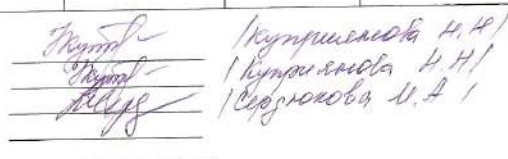 /Куприянова Н.Н/
/Куприянова Н.Н/
/Сердюкова И.А/